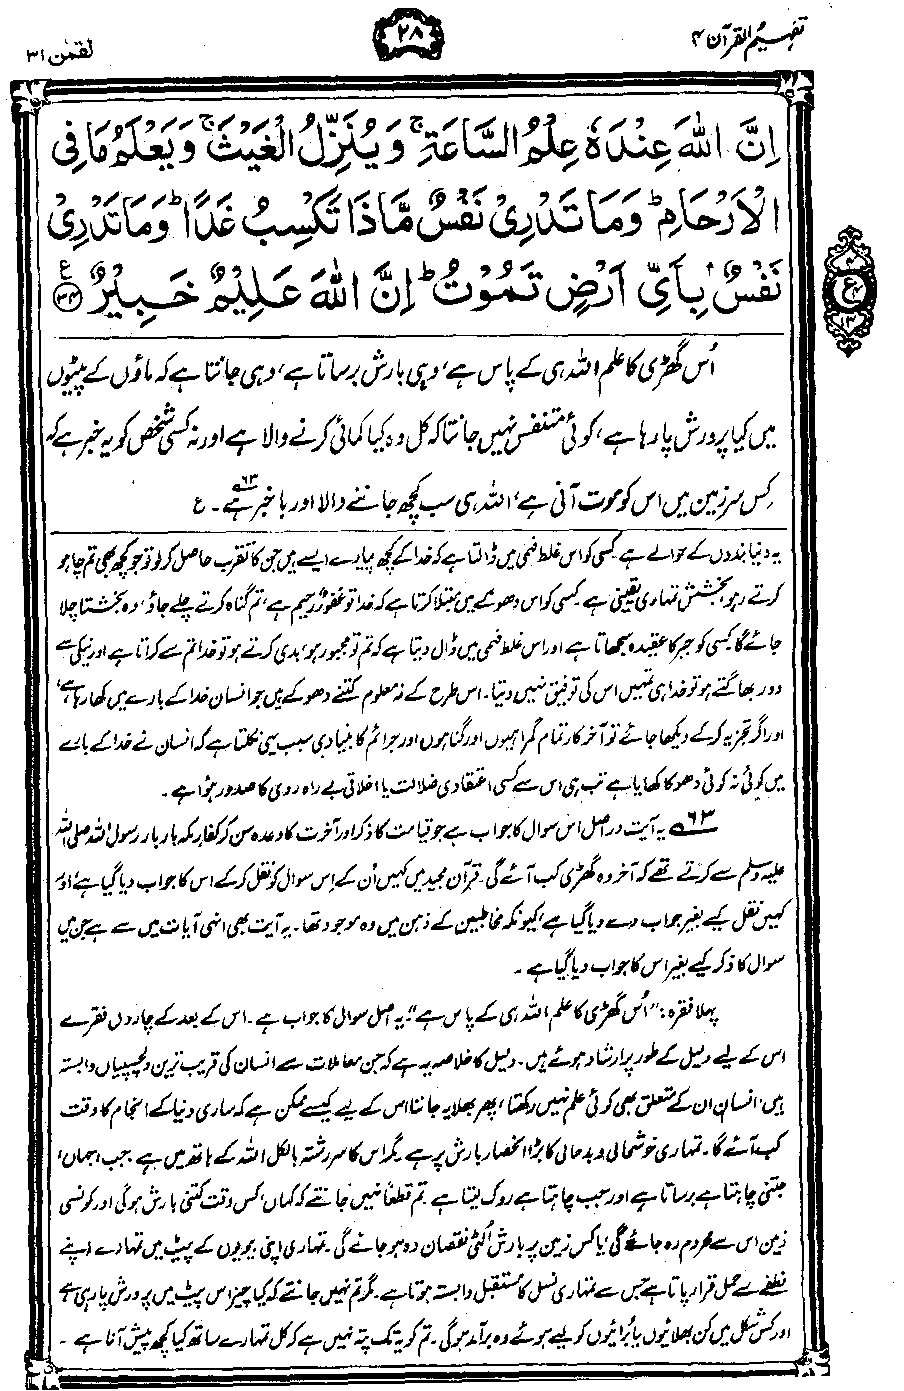 تفہیم القرآن ۴
۲۸
لقمٰن ۳۱
اِنَّ اللّٰهَ عِنْدَهٗ عِلْمُ السَّاعَةِ ۚ وَيُنَزِّلُ الْغَيْثَ ۚ وَيَعْلَمُ مَا فِى
الْاَرْحَامِ ؕ وَمَا تَدْرِىْ نَفْسٌ مَّاذَا تَكْسِبُ غَدًا ؕ وَمَا تَدْرِىْ
نَفْسٌۢ بِاَىِّ اَرْضٍ تَمُوْتُ ؕ اِنَّ اللّٰهَ عَلِيْمٌ خَبِيْرٌ ﴿۳۴﴾ ع
۴
ع
۱۳
اُس گھڑی کا علم اللہ ہی کے پاس ہے، وہی بارش برساتا ہے، وہی جانتا ہے کہ ماؤں کے پیٹوں
میں کیا پرورش پا رہا ہے، کوئی متنفس نہیں جانتا کہ کل وہ کیا کمائی کرنے والا ہے اور نہ کسی شخص کو یہ خبر ہے کہ
کِس سرزمین میں اس کو موت آنی ہے، اللہ ہی سب کچھ جاننے والا اور باخبر ہے۶۳۔ ع
یہ دنیا بندوں کے حوالے ہے۔ کسی کو اس غلط فہمی میں ڈالتا ہے کہ خدا کے کچھ پیارے ایسے ہیں جن کا تقرب حاصل کر لو تو جو کچھ بھی تم چاہو
کرتے رہو، بخشش تمہاری یقینی ہے۔ کسی کو اس دھوکے میں مبتلا کرتا ہے کہ خدا تو غفورٌ رحیم ہے، تم گناہ کرتے چلے جاؤ، وہ بخشتا چلا
جائے گا۔ کسی کو جبر کا عقیدہ سمجھاتا ہے اور اس غلط فہمی میں ڈال دیتا ہے کہ تم تو مجبور ہو، بدی کرتے ہو تو خدا تم سے کراتا ہے اور نیکی سے
دور بھاگتے ہو تو خدا ہی تمہیں اس کی توفیق نہیں دیتا۔ اس طرح کے نہ معلوم کتنے دھوکے ہیں جو انسان خدا کے بارے میں کھا رہا ہے،
اور اگر تجزیہ کر کے دیکھا جائے تو آخر کار تمام گمراہیوں اور گناہوں اور جرائم کا بنیادی سبب یہی نکلتا ہے کہ انسان نے خدا کے بارے
میں کوئی نہ کوئی دھوکا کھایا ہے تب ہی اس سے کسی اعتقادی ضلالت یا اخلاقی بے راہ روی کا صدور ہوا ہے۔
۶۳ یہ آیت دراصل اس سوال کا جواب ہے جو قیامت کا ذکر اور آخرت کا وعدہ سن کر کفارِ مکہ بار بار رسول اللہ صلی اللہ
علیہ وسلم سے کرتے تھے کہ آخر وہ گھڑی کب آئے گی۔ قرآن مجید میں کہیں اُن کے اِس سوال کو نقل کر کے اس کا جواب دیا گیا ہے، اور
کہیں نقل کیے بغیر جواب دے دیا گیا ہے، کیونکہ مخاطبین کے ذہن میں وہ موجود تھا۔ یہ آیت بھی انہی آیات میں سے ہے جن میں
سوال کا ذکر کیے بغیر اس کا جواب دیا گیا ہے۔
پہلا فقرہ: "اُس گھڑی کا علم اللہ ہی کے پاس ہے"، یہ اصل سوال کا جواب ہے۔ اس کے بعد کے چاروں فقرے
اس کے لیے دلیل کے طور پر ارشاد ہوئے ہیں۔ دلیل کا خلاصہ یہ ہے کہ جن معاملات سے انسان کی قریب ترین دلچسپیاں وابستہ
ہیں، انسان ان کے متعلق بھی کوئی علم نہیں رکھتا، پھر بھلا یہ جاننا اس کے لیے کیسے ممکن ہے کہ ساری دنیا کے انجام کا وقت
کب آئے گا۔ تمہاری خوشحالی و بدحالی کا بڑا انحصار بارش پر ہے۔ مگر اس کا سررشتہ بالکل اللہ کے ہاتھ میں ہے۔ جب، جہاں،
جتنی چاہتا ہے برساتا ہے اور جب چاہتا ہے روک لیتا ہے۔ تم قطعاً نہیں جانتے کہ کہاں، کس وقت کتنی بارش ہوگی اور کونسی
زمین اس سے محروم رہ جائے گی، یا کس زمین پر بارش اُلٹی نقصان دہ ہو جائے گی۔ تمہاری اپنی بیویوں کے پیٹ میں تمہارے اپنے
نطفے سے حمل قرار پاتا ہے جس سے تمہاری نسل کا مستقبل وابستہ ہوتا ہے۔ مگر تم نہیں جانتے کہ کیا چیز اس پیٹ میں پرورش پا رہی ہے
اور کس شکل میں کن بھلائیوں یا برائیوں کو لیے ہوئے وہ برآمد ہوگی۔ تم کو یہ تک پتہ نہیں ہے کہ کل تمہارے ساتھ کیا کچھ پیش آنا ہے۔